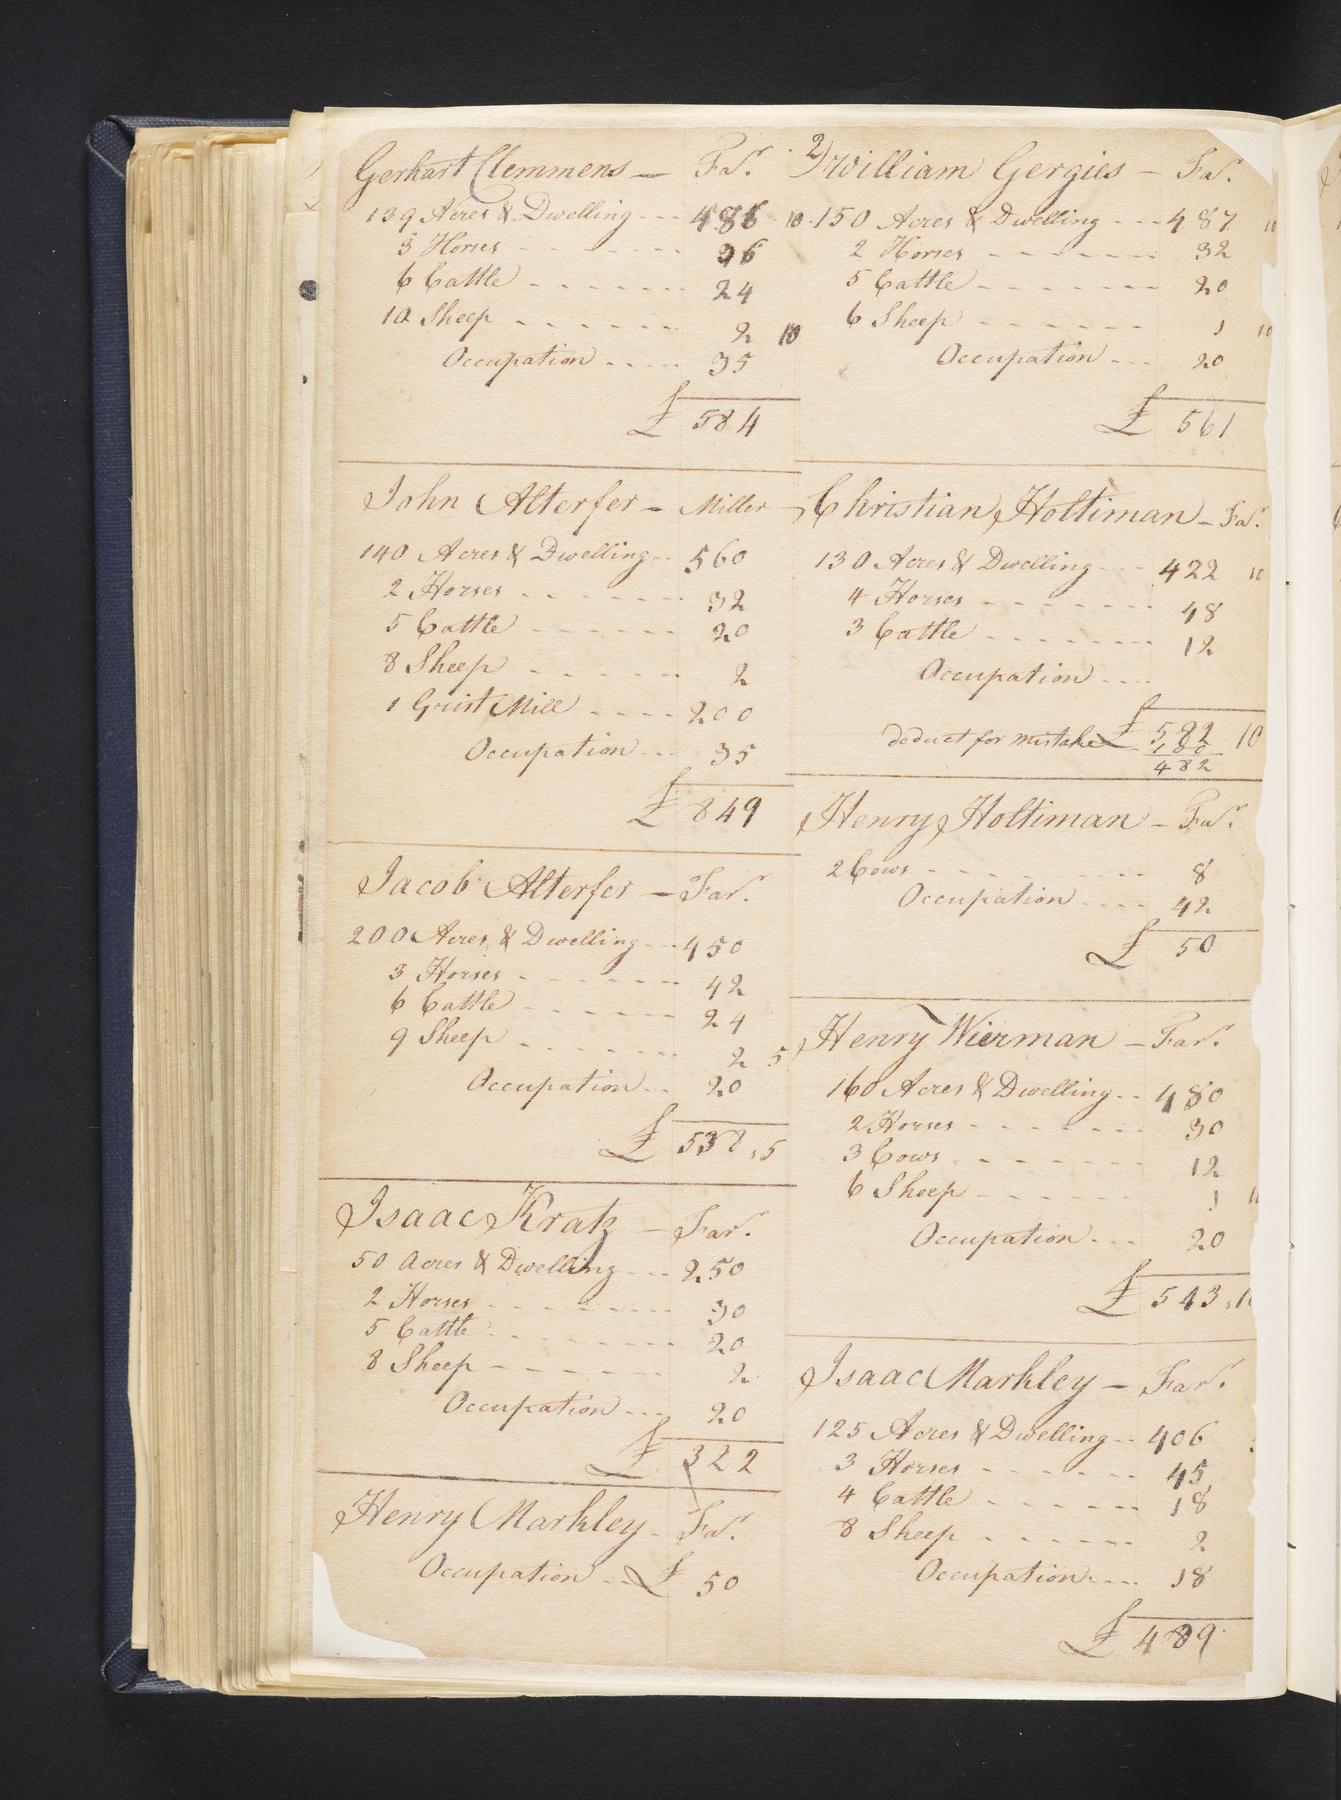 Gerhart Clemmens — Far.
139 Acres & Dwelling --- 486 10
3 Horses - - - - - - 36
6 Cattle - - - - - - 24
10 Sheep - - - - - - 2 10
Occupation ..... 35
£ 584
John Alterfer - Miller
140 Acres & Dwelling -- 560
2 Horses - - - - - - 32
5 Cattle - - - - - - 20
8 Sheep - - - - - - 2
1 Griist Mill - - - - 200
Occupation ... 35
£ 849
Jacob Alterfer — Far.
200 Acres & Dwelling --- 450
3 Horses - - - - - - 42
6 Cattle - - - - - - 24
9 Sheep - - - - - - 2 5
Occupation ... 20
£ 538,5
Isaac Kratz — Far.
50 Acres & Dwelling --- 250
2 Horses - - - - - - 30
5 Cattle - - - - - - 20
8 Sheep - - - - - - 2
Occupation ... 20
£ 322
Henry Markley - Far.
Occupation --- £ 50
2) William Gergies — Far.
150 Acres & Dwelling --- 487 10
2 Horses - - - - - - 32
5 Cattle - - - - - - 20
6 Sheep - - - - - - 1 10
Occupation ... 20
£ 561
Christian Holtiman - Far.
130 Acres & Dwelling --- 422 10
4 Horses - - - - - - 48
3 Cattle - - - - - - 12
Occupation ....
£ 582 10
deduct for mistake 100
482
Henry Holtiman - Far.
2 Cows - - - - - - 8
Occupation .... 42
£ 50
Henry Wierman — Far.
160 Acres & Dwelling --- 480
2 Horses - - - - - - 30
3 Cows - - - - - - 12
6 Sheep - - - - - - 1
Occupation ... 20
£ 543,10
Isaac Markley — Far.
125 Acres & Dwelling --- 406
3 Horses - - - - - - 45
4 Cattle - - - - - - 18
8 Sheep - - - - - - 2
Occupation .... 18
£ 489